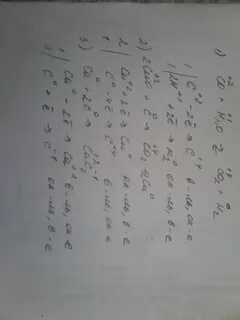 1) +2CO + +1H2O ⇄ +4CO2 + 0H2
1 | C+2 - 2ē → C+4 в-ль, ок-е
1 | 2H+1 + 2ē → H2 0 ок-ль, в-е
2) 2CuO + C → CO2 + 2Cu
2 | Cu+2 + 2ē → Cu0 ок-ль, в-е
1 | C0 - 4ē → C+4 в-ль, ок-е
3) Ca + 2C → CaC2
1 | Ca0 - 2ē → Ca+2 в-ль, ок-е
2 | C0 + ē → C-1 ок-ль, в-е